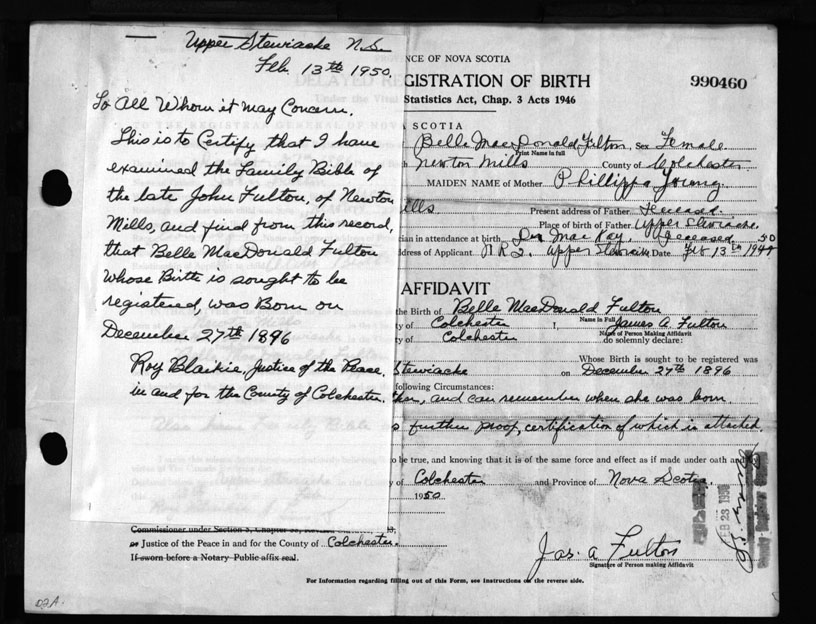 Upper Stewiacke N.S.
Feb. 13th 1950.
To All Whom it May Concern.
This is to Certify that I have
examined the Family Bible of
the late John Fulton, of Newton
Mills, and find from this record,
that Belle MacDonald Fulton
whose Birth is sought to be
registered, was Born on
December 27th 1896
Roy Blaikie, Justice of the Peace,
in and for the County of Colchester.
NCE OF NOVA SCOTIA
GISTRATION OF BIRTH
990460
Statistics Act, Chap. 3 Acts 1946
SCOTIA
Belle MacDonald Fulton, Sex Female
Print Name in full
Newton Mills County of Colchester
MAIDEN NAME of Mother Phillippa Young
lls Present address of Father Deceased
Place of Birth of Father Upper Stewiacke
cian in attendance at birth Dr MacKay, Deceased
ddress of Applicant R.R.2. Upper Stewiacke Date Feb 13th
AFFIDAVIT
the Birth of Belle MacDonald Fulton
Name in Full
y of Colchester I, James A. Fulton
Name of Person Making Affidavit
of Colchester do solemnly declare:
Whose Birth is sought to be registered was
Stewiacke on December 27th 1896
following Circumstances:
and can remember when she was born.
further proof, certification of which is attached.
be true, and knowing that it is of the same force and effect as if made under oath and
of Colchester and Province of Nova Scotia.
1950
Commissioner under Section
or Justice of the Peace in and for the County of Colchester.
If sworn before a Notary Public affix seal.
FEB 23 1950
Jas. A Fulton
Signature of Person making Affidavit
For Information regarding filling out of this Form, see Instructions on the reverse side.